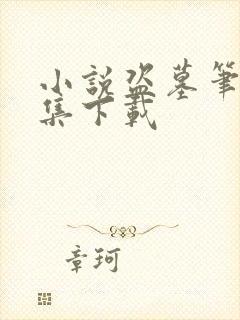 小說盜墓筆
集下載
章珂